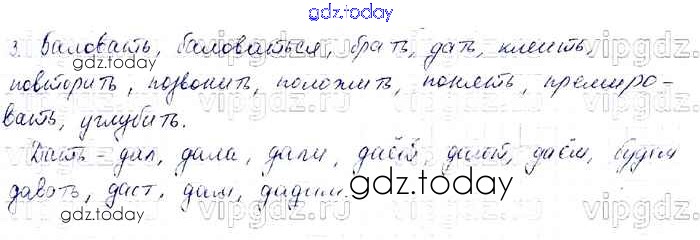 gdz.today
3. Баловать, баловаться, брать, дать, клеить,
повторить, позвонить, положить, понять, премиро-
вать, углубить.
Дать - дал, дала, дали, даёт, дают, даём, будем
давать, даст, дам, дадим.
gdz.today
gdz.today
gdz.today
vipgdz.ru